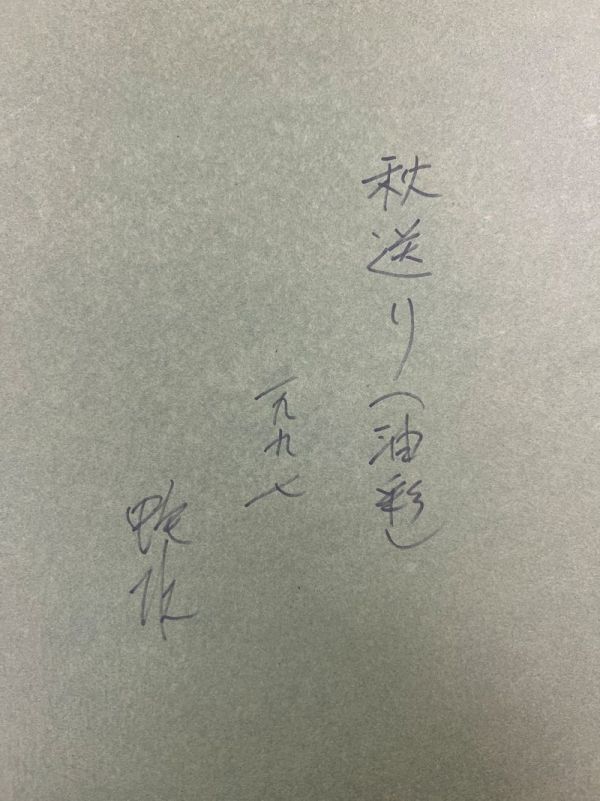 秋送り(油彩)
一九九七